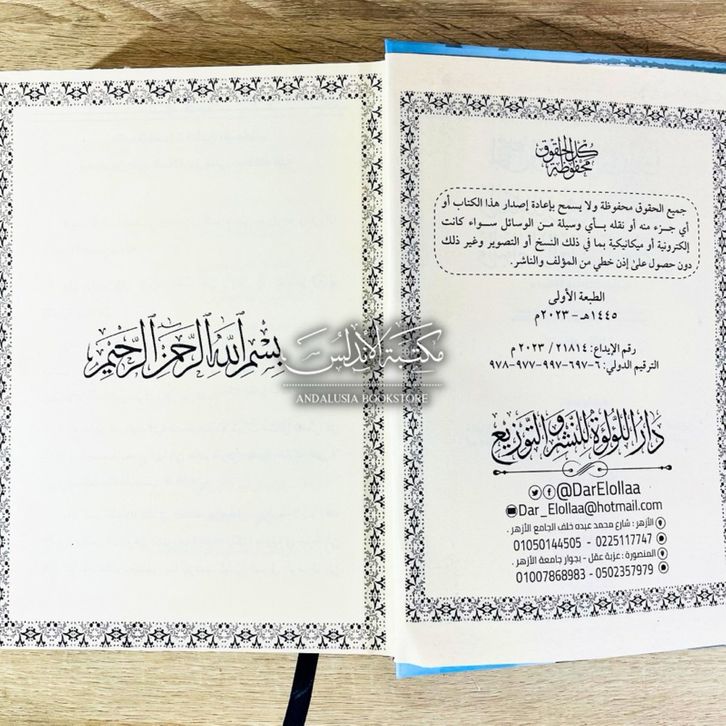 كل الحقوق
محفوظة
جميع الحقوق محفوظة ولا يسمح بإعادة إصدار هذا الكتاب أو
أي جزء منه أو نقله بأي وسيلة من الوسائل سواء كانت
إلكترونية أو ميكانيكية بما في ذلك النسخ أو التصوير وغير ذلك
دون حصول على إذن خطي من المؤلف والناشر.
الطبعة الأولى
١٤٤٥هـ - ٢٠٢٣م
رقم الإيداع: ٢١٨١٤ / ٢٠٢٣ م
الترقيم الدولي: ٦-٦٩٧-٩٩٧-٩٧٧-٩٧٨
دار اللؤلؤة للنشر والتوزيع
@DarElollaa
Dar_Elollaa@hotmail.com
الأزهر : شارع محمد عبده خلف الجامع الأزهر .
01050144505 - 0225117747
المنصورة : عزبة عقل - بجوار جامعة الأزهر .
01007868983 - 0502357979
بِسْمِ اللَّهِ الرَّحْمَنِ الرَّحِيمِ
مكتبة الأندلس
ANDALUSIA BOOKSTORE